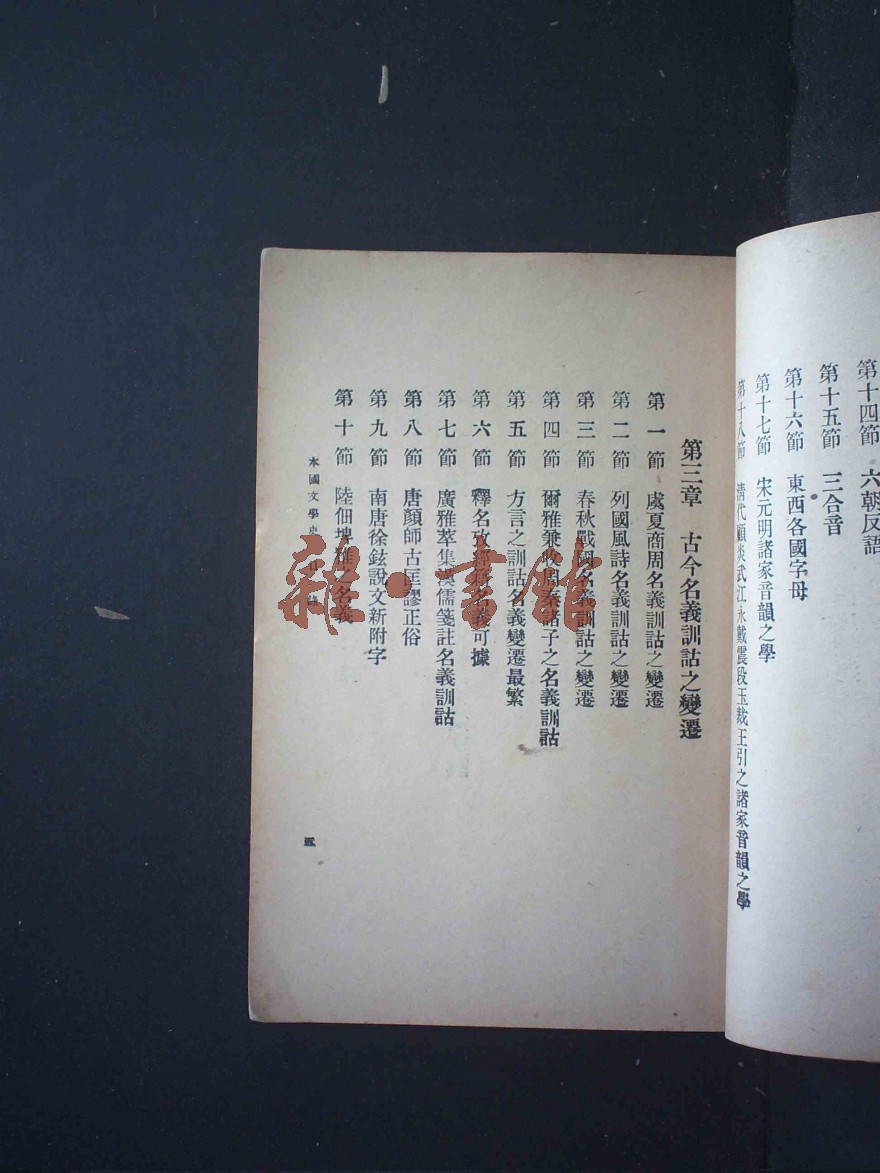 第十四節　六朝反語
第十五節　三合音
第十六節　東西各國字母
第十七節　宋元明諸家音韻之學
第十八節　清代顧炎武江永戴震段玉裁王引之諸家音韻之學
第三章　古今名義訓詁之變遷
第一節　虞夏商周名義訓詁之變遷
第二節　列國風詩名義訓詁之變遷
第三節　春秋戰國名義訓詁之變遷
第四節　爾雅兼收周秦諸子之名義訓詁
第五節　方言之訓詁名義變遷最繁
第六節　釋名攷經籍名義可據
第七節　廣雅萃集漢儒箋註名義訓詁
第八節　唐顏師古匡謬正俗
第九節　南唐徐鉉說文新附字
第十節　陸佃埤雅之名義
本國文學史目錄
五
雜·書館